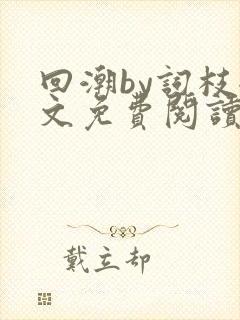 回潮by詞枝
文免費閱讀
戴立却